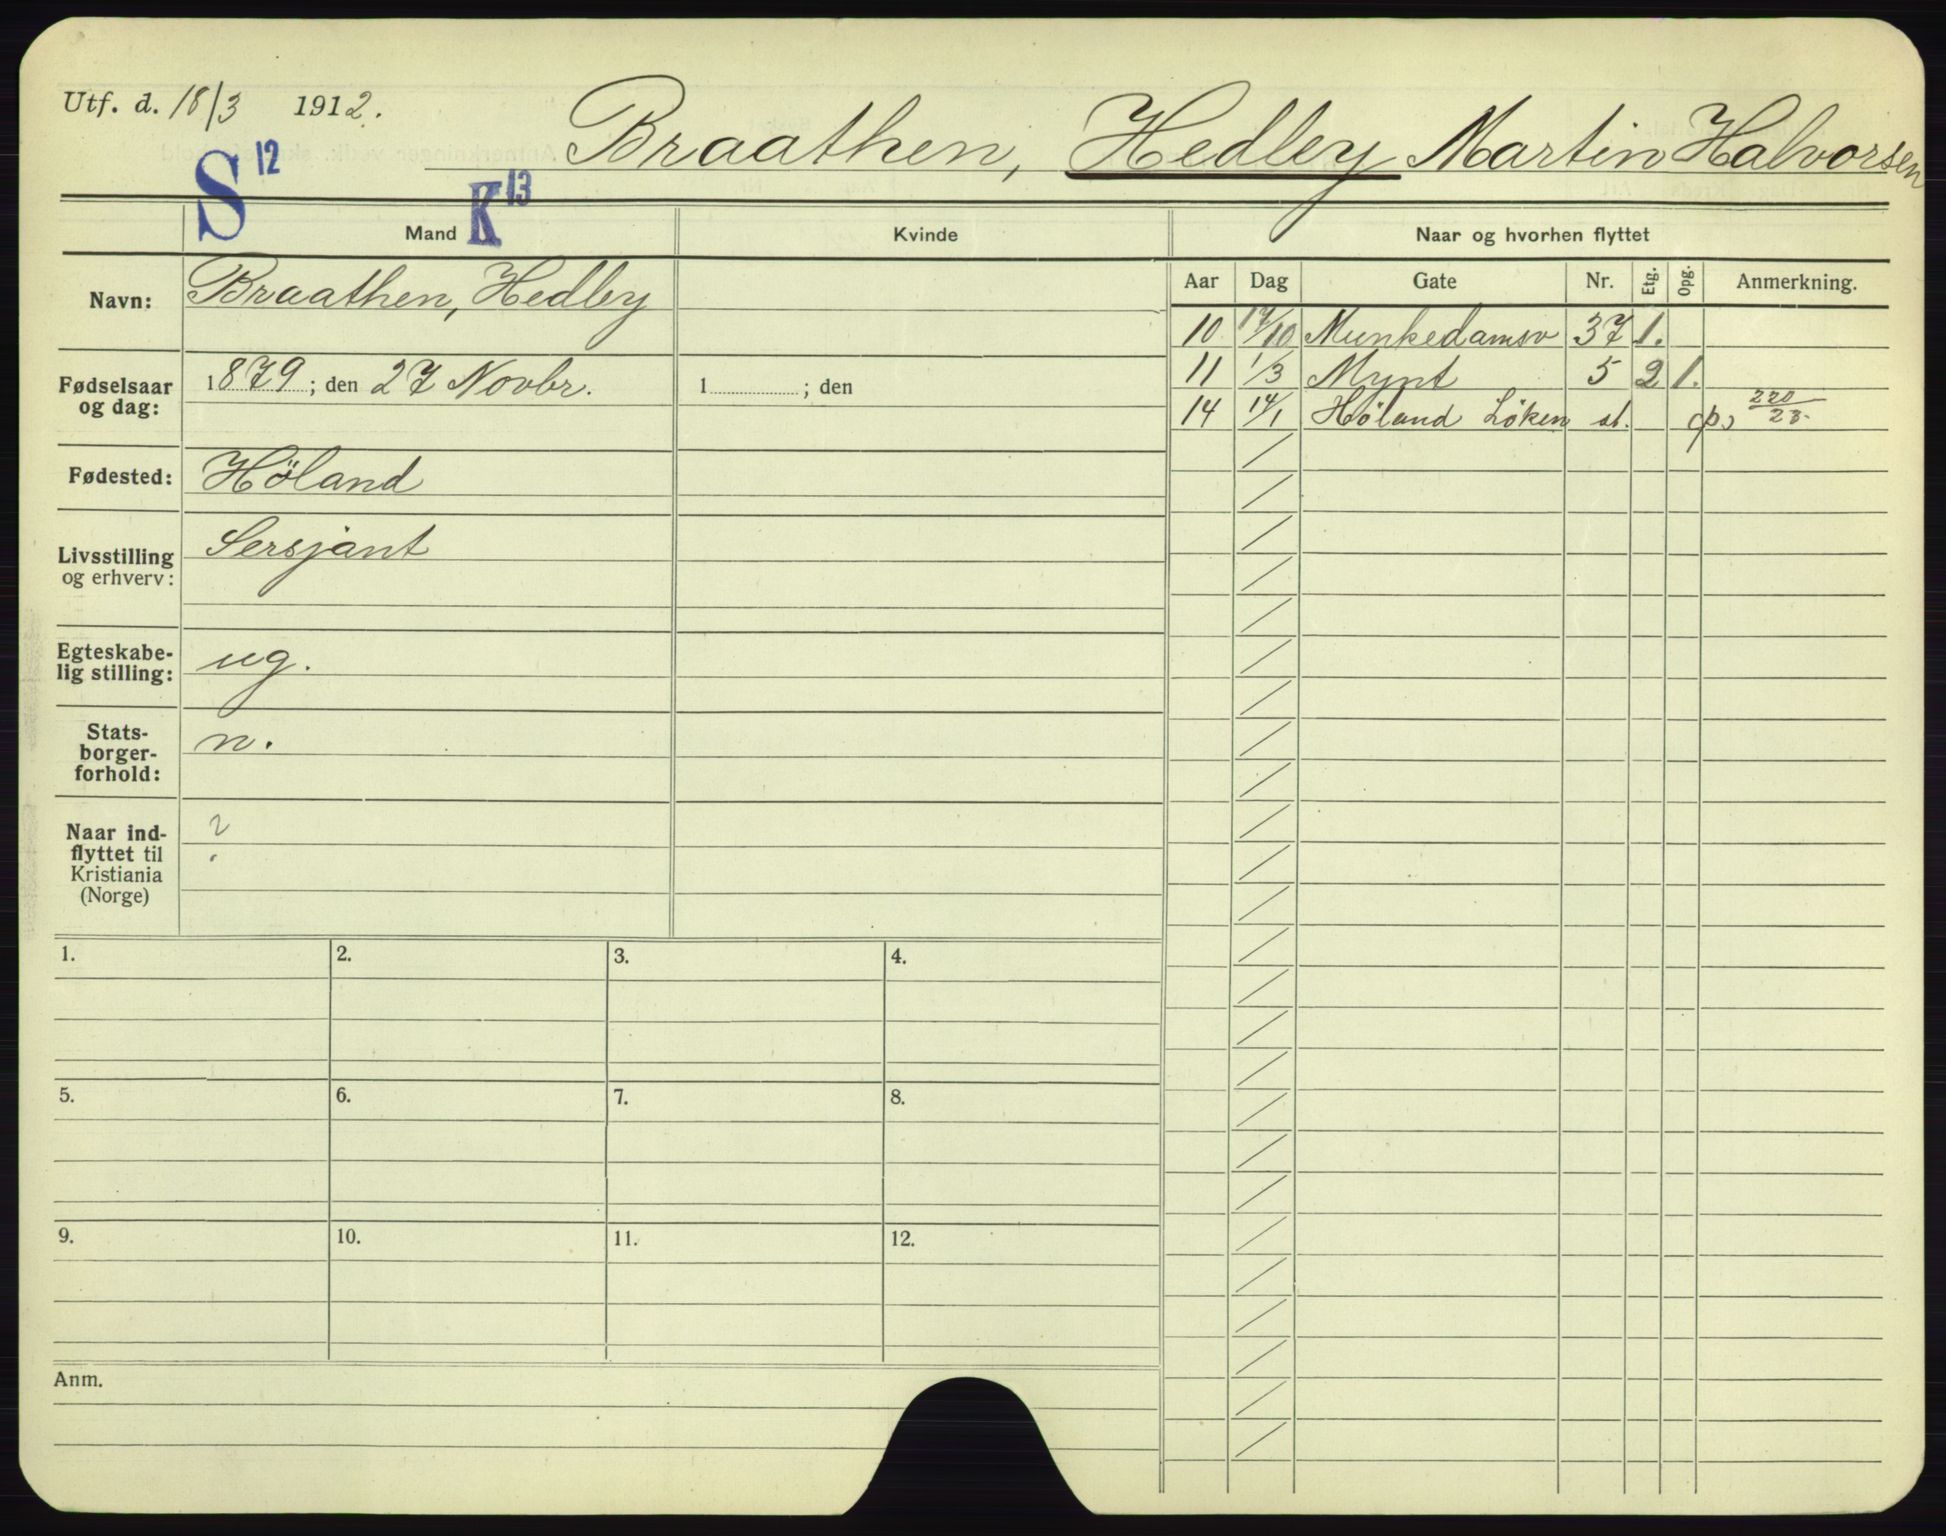 Utf. d. 18/3 1912.
Braathen, Hedley Martin Halvorsen
S 12
K 13
Mand
Kvinde
Naar og hvorhen flyttet
Navn:
Braathen, Hedley
Fødselsaar
og dag:
1879; den 27 Novbr.
1 ; den
Fødested:
Höland
Livsstilling
og erhverv:
Sersjant
Egteskabe-
lig stilling:
ug.
Stats-
borger-
forhold:
n.
Naar ind-
flyttet til
Kristiania
(Norge)
?
Aar Dag Gate Nr. Etg. Opg. Anmerkning.
10 17/10 Munkedamsv 37 1.
11 1/3 Mynt 5 2 1.
14 14/1 Høland Løken st. 220/23.
1. 2. 3. 4.
5. 6. 7. 8.
9. 10. 11. 12.
Anm.